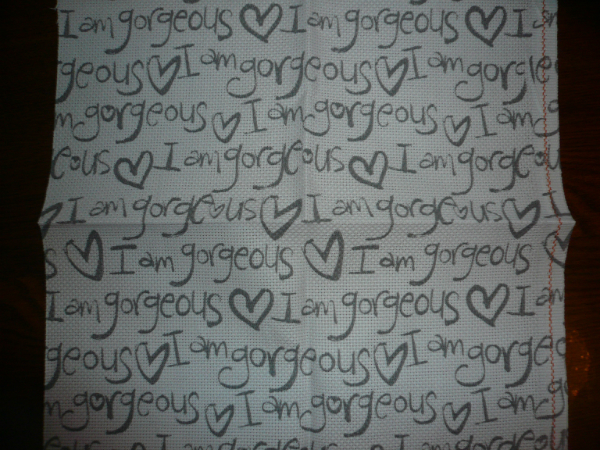 I am gorgeous I am gorgeous I am
geous I am gorgeous I am gorgeo
m gorgeous I am gorgeous I am g
eous I am gorgeous I am gorgeou
I am gorgeous I am gorgeous I
s I am gorgeous I am gorgeous
I am gorgeous I am gorgeous I am
geous I am gorgeous I am gorgeo
m gorgeous I am gorgeous I am g
eous I am gorgeous I am gorgeou